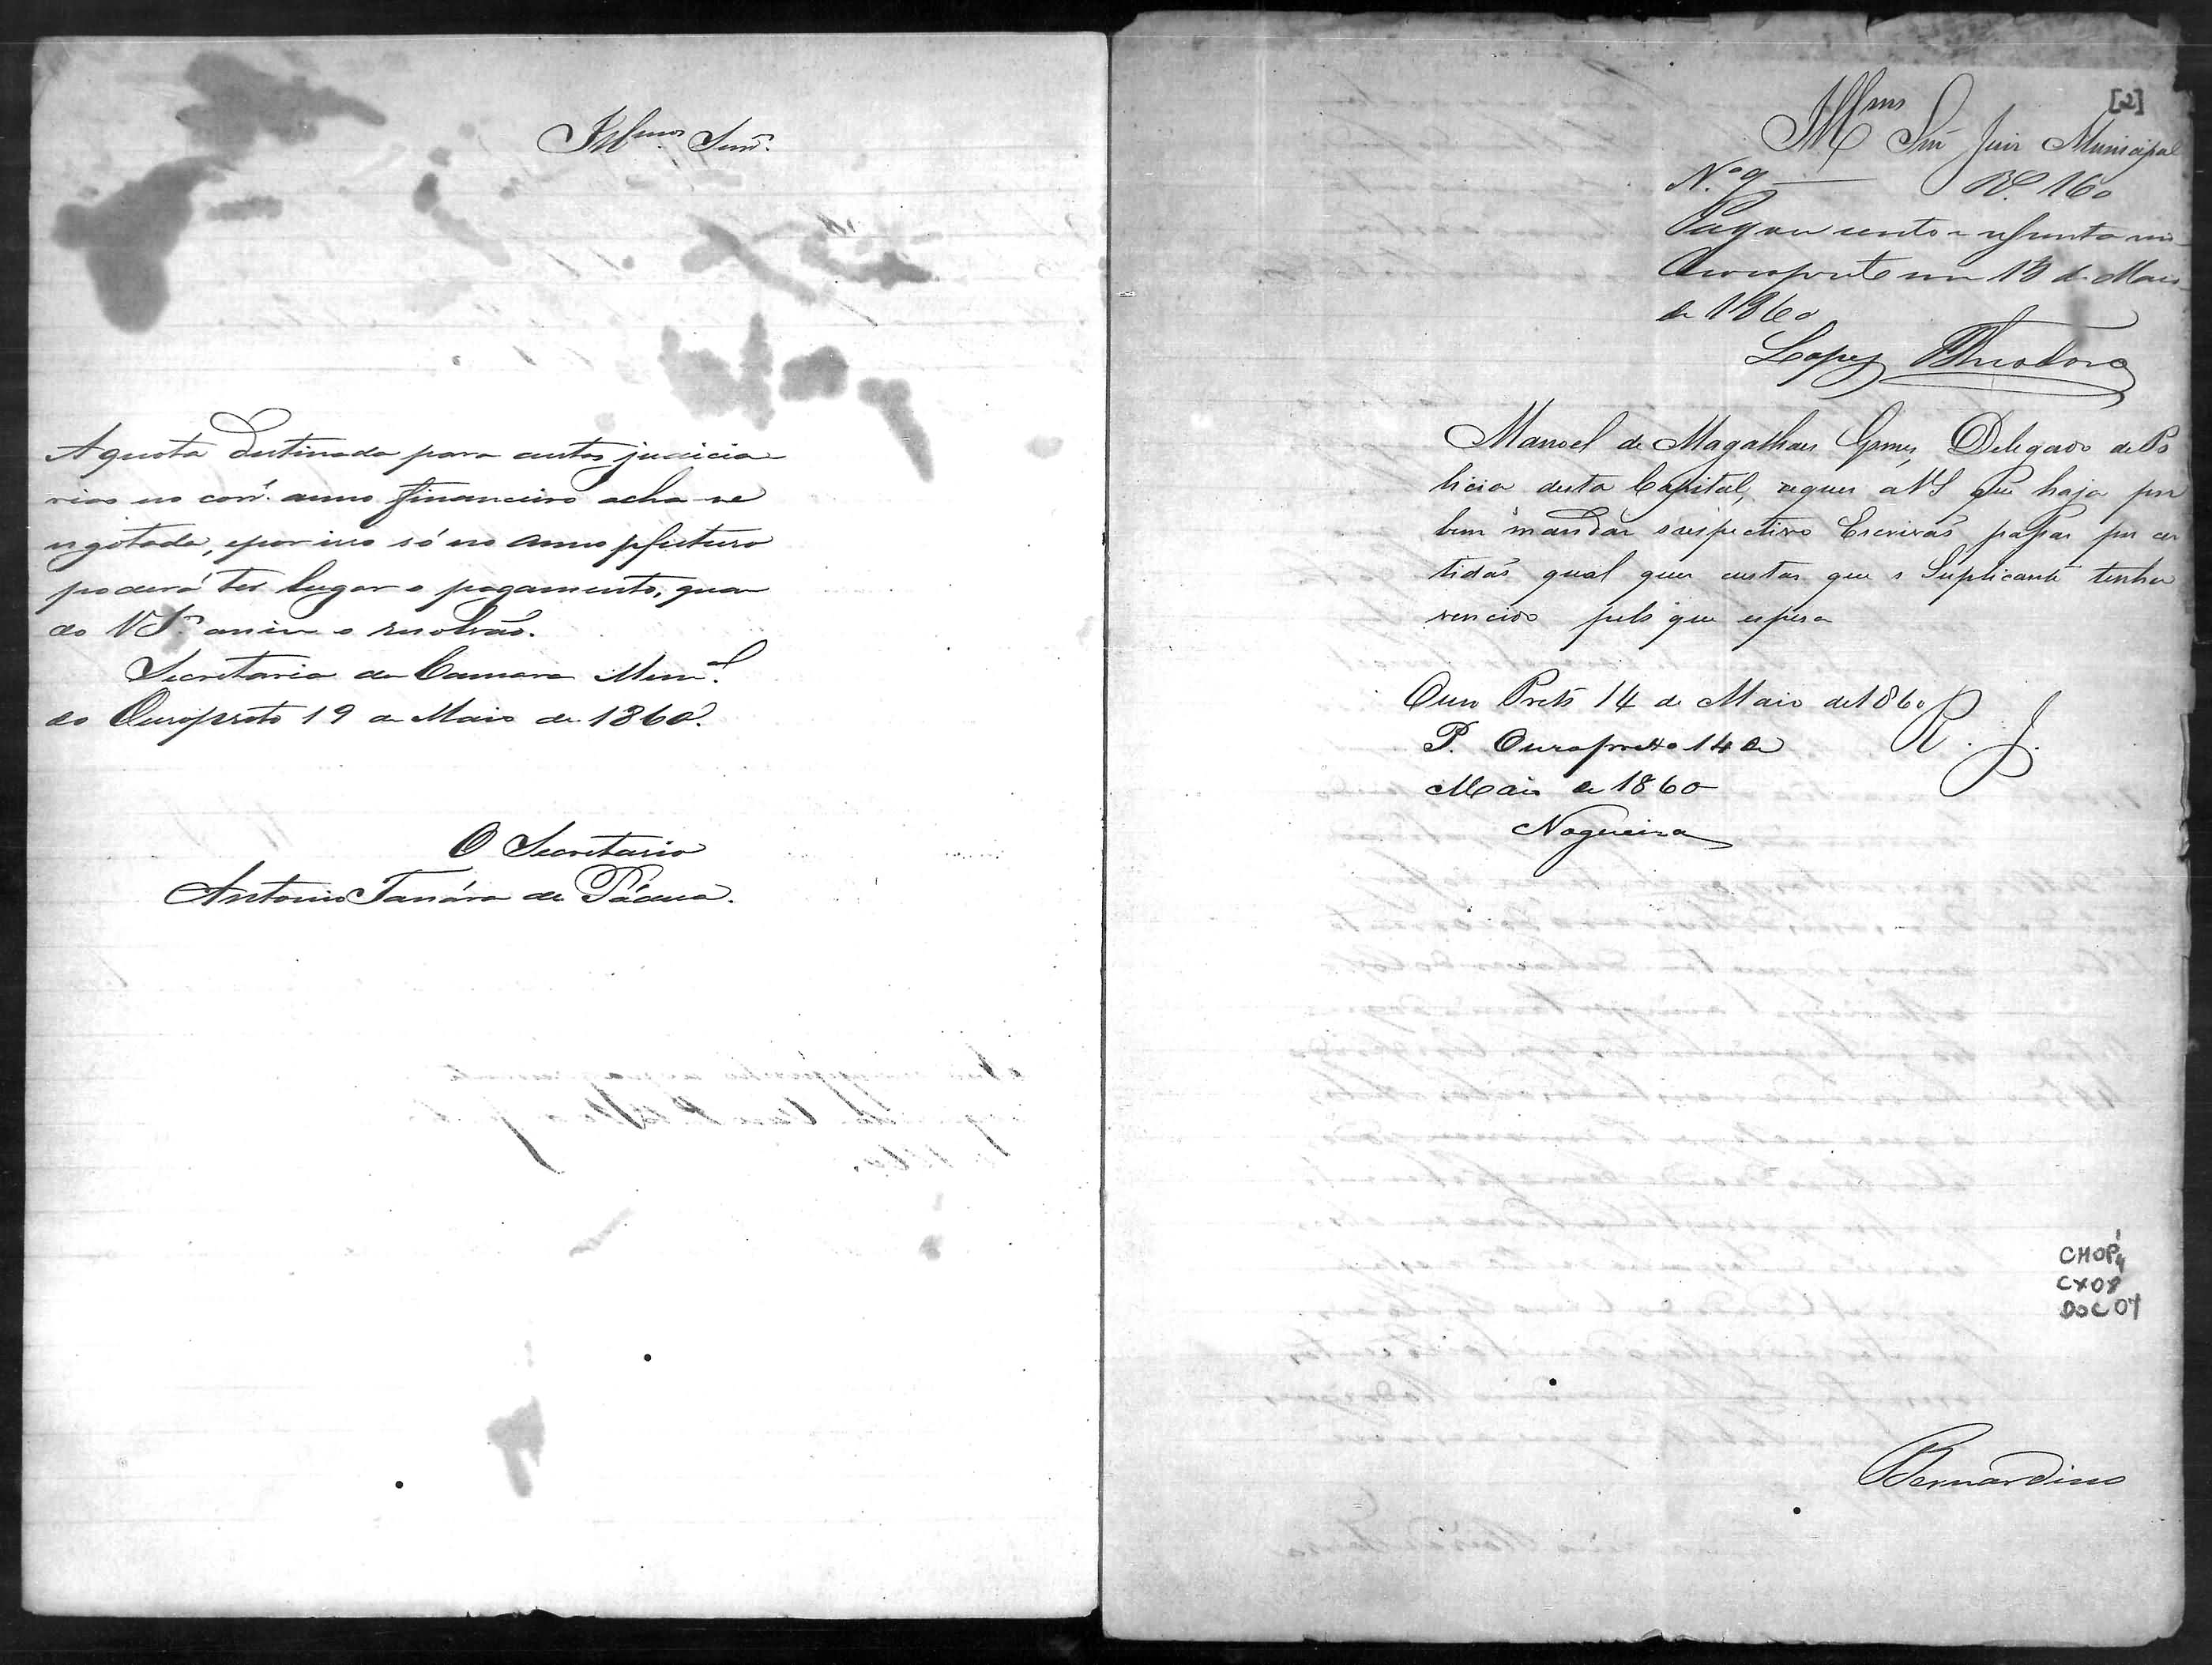 Illmos Snr.
A quota destinada para custas judicia
rias no corr. anno financeiro acha-se
esgotada, e por isso só no anno p futuro
poderá ter lugar o pagamento, quan
do VSas. assim o resolvão.
Secretaria da Camara Mun.al
do Ouropreto 19 de Maio de 1860.
O Secretario
Antonio de Pádua.
[2]
Illmo Snr Juiz Municipal
N.º 9 Rs. 160
Pagou cento e sessenta rs
Ouropreto em de Maio
de 1860
Lopes Theodoro
Manoel de Magalhaes Gomes, Delegado de Po
licia desta Capital, requer a VS que haja por
bem mandar o respectivo Escrivaõ passar por cer
tidaõ qual quer custas que o Suplicante tenha
vencido pelo que espera
Ouro Preto 14 de Maio de 1860
R. J.
P. Ouropretto 14 de
Maio de 1860
Nogueira
CMOP
CX08
DOC 07
Bernardino